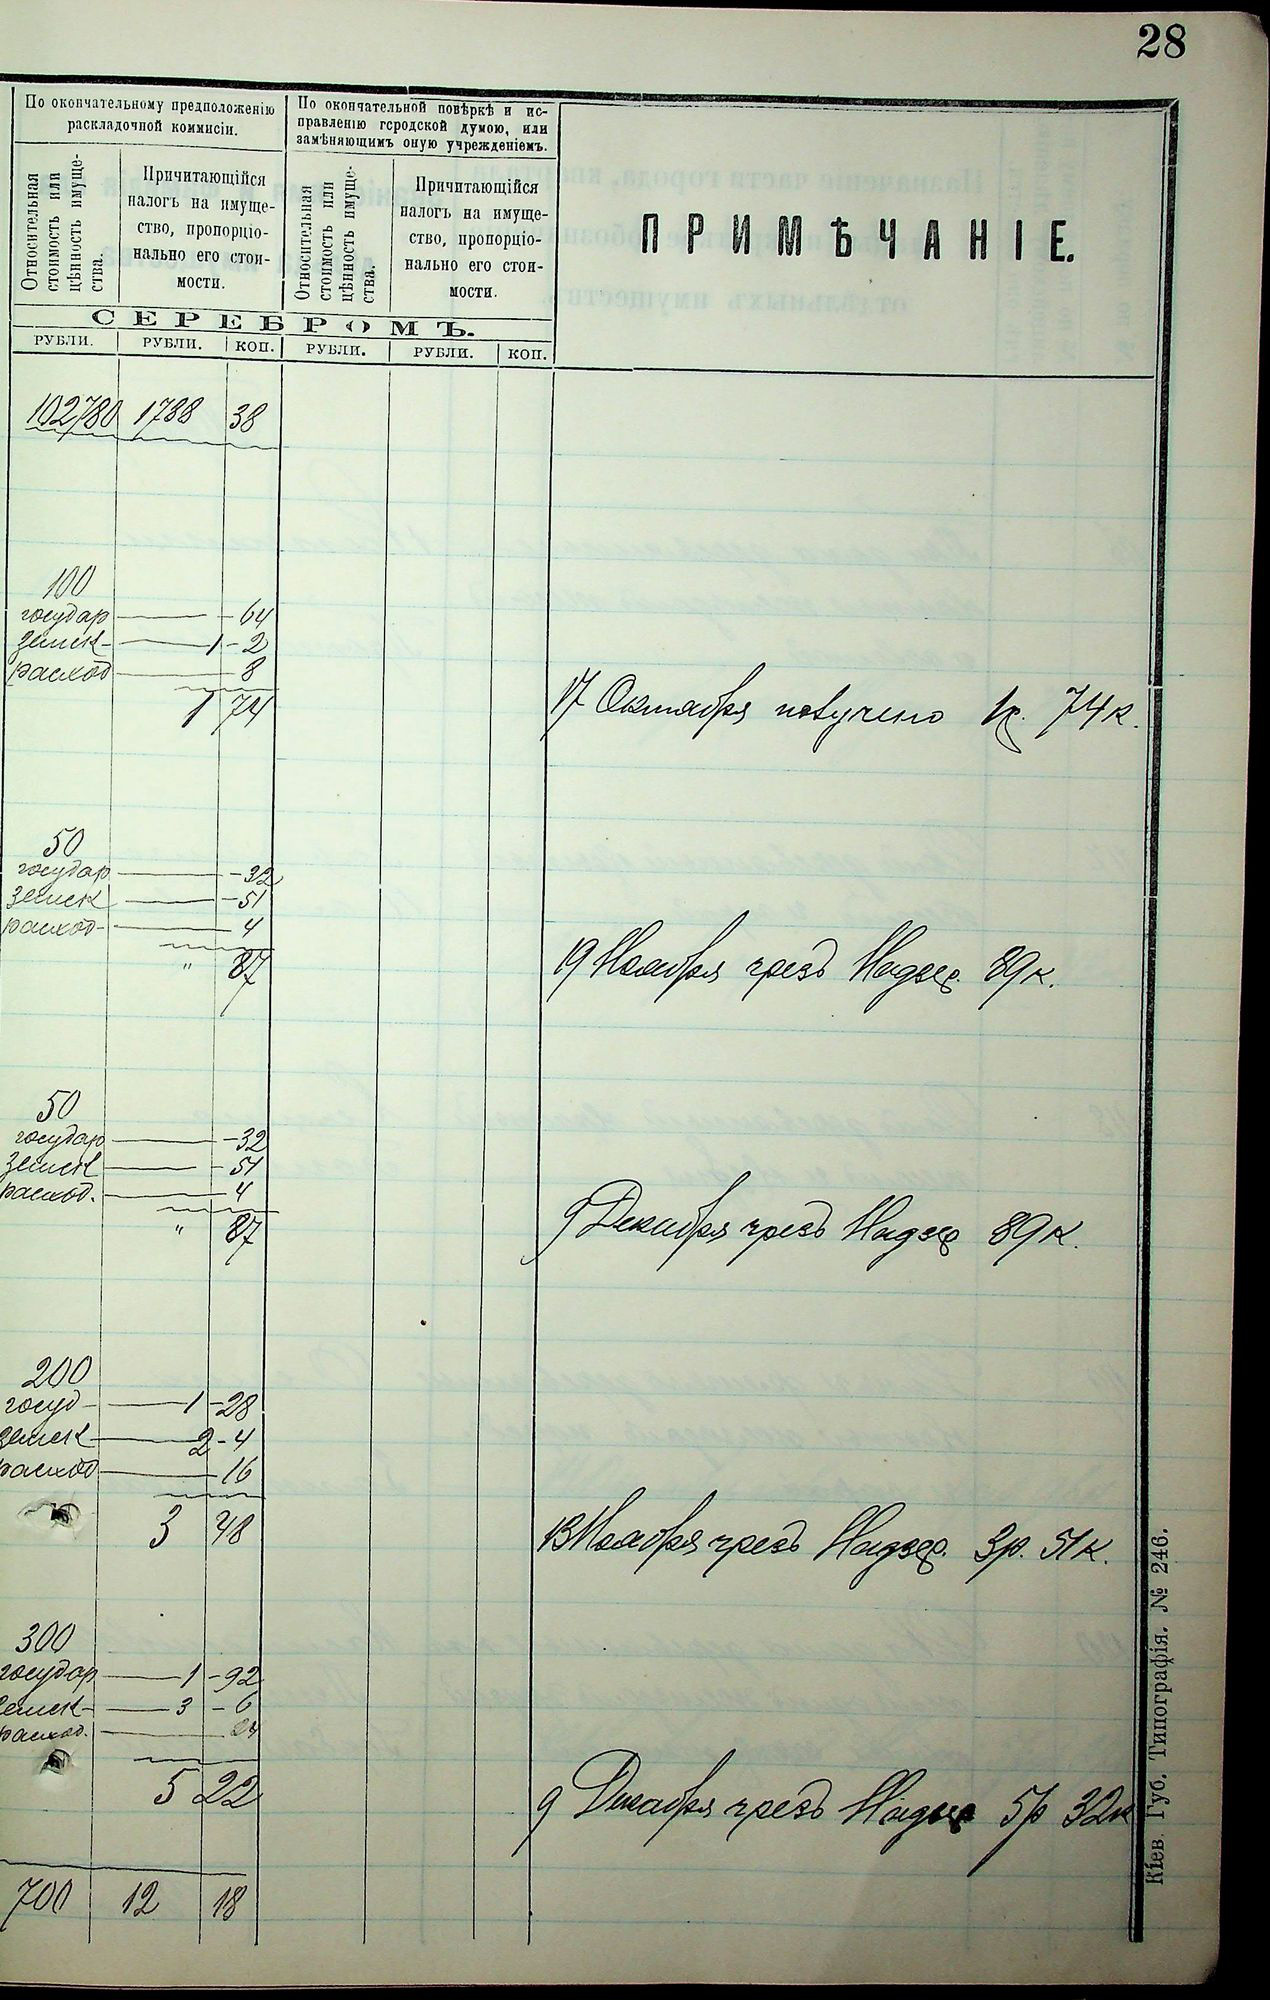 28
По окончательному предположенію
раскладочной коммисіи.
По окончательной повѣркѣ и ис-
правленію городской думою, или
замѣняющимъ оную учрежденіемъ.
Относительная
стоимость или
цѣнность имуще-
ства.
Причитающійся
налогъ на имуще-
ство, пропорціо-
нально его стои-
мости.
Относительная
стоимость или
цѣнность имуще-
ства.
Причитающійся
налогъ на имуще-
ство, пропорціо-
нально его стои-
мости.
ПРИМѢЧАНІЕ.
СЕРЕБРОМЪ.
РУБЛИ. РУБЛИ. КОП. РУБЛИ. РУБЛИ. КОП.
102780 1788 38
100
государ — 64
земск — 1 - 2
расход — 8
1 74
17 Октября получено 1р. 74 к.
50
государ — 32
земск — 51
расход — 4
" 87
19 Ноября чрезъ Надзир. 89 к.
50
государ — 32
земск — 51
расход. — 4
" 87
9 Декабря чрезъ Надзир 89 к.
200
госуд — 1 - 28
земск — 2 - 4
расход — 16
3 48
13 Ноября чрезъ Надзир. 3 р. 51 к.
300
государ — 1 - 92
земск — 3 - 6
расход. — 24
5 22
9 Декабря чрезъ Надзир 5 р 32 к
700 12 18
Кіев. Губ. Типографія. № 246.